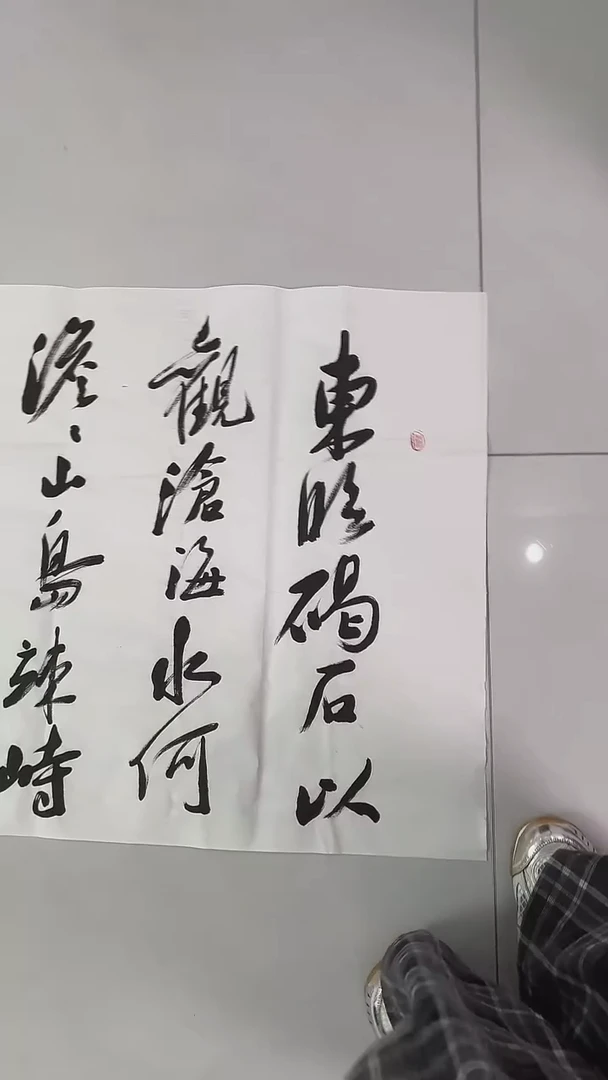 東临碣石以
觀滄海水何
澹々山島竦峙